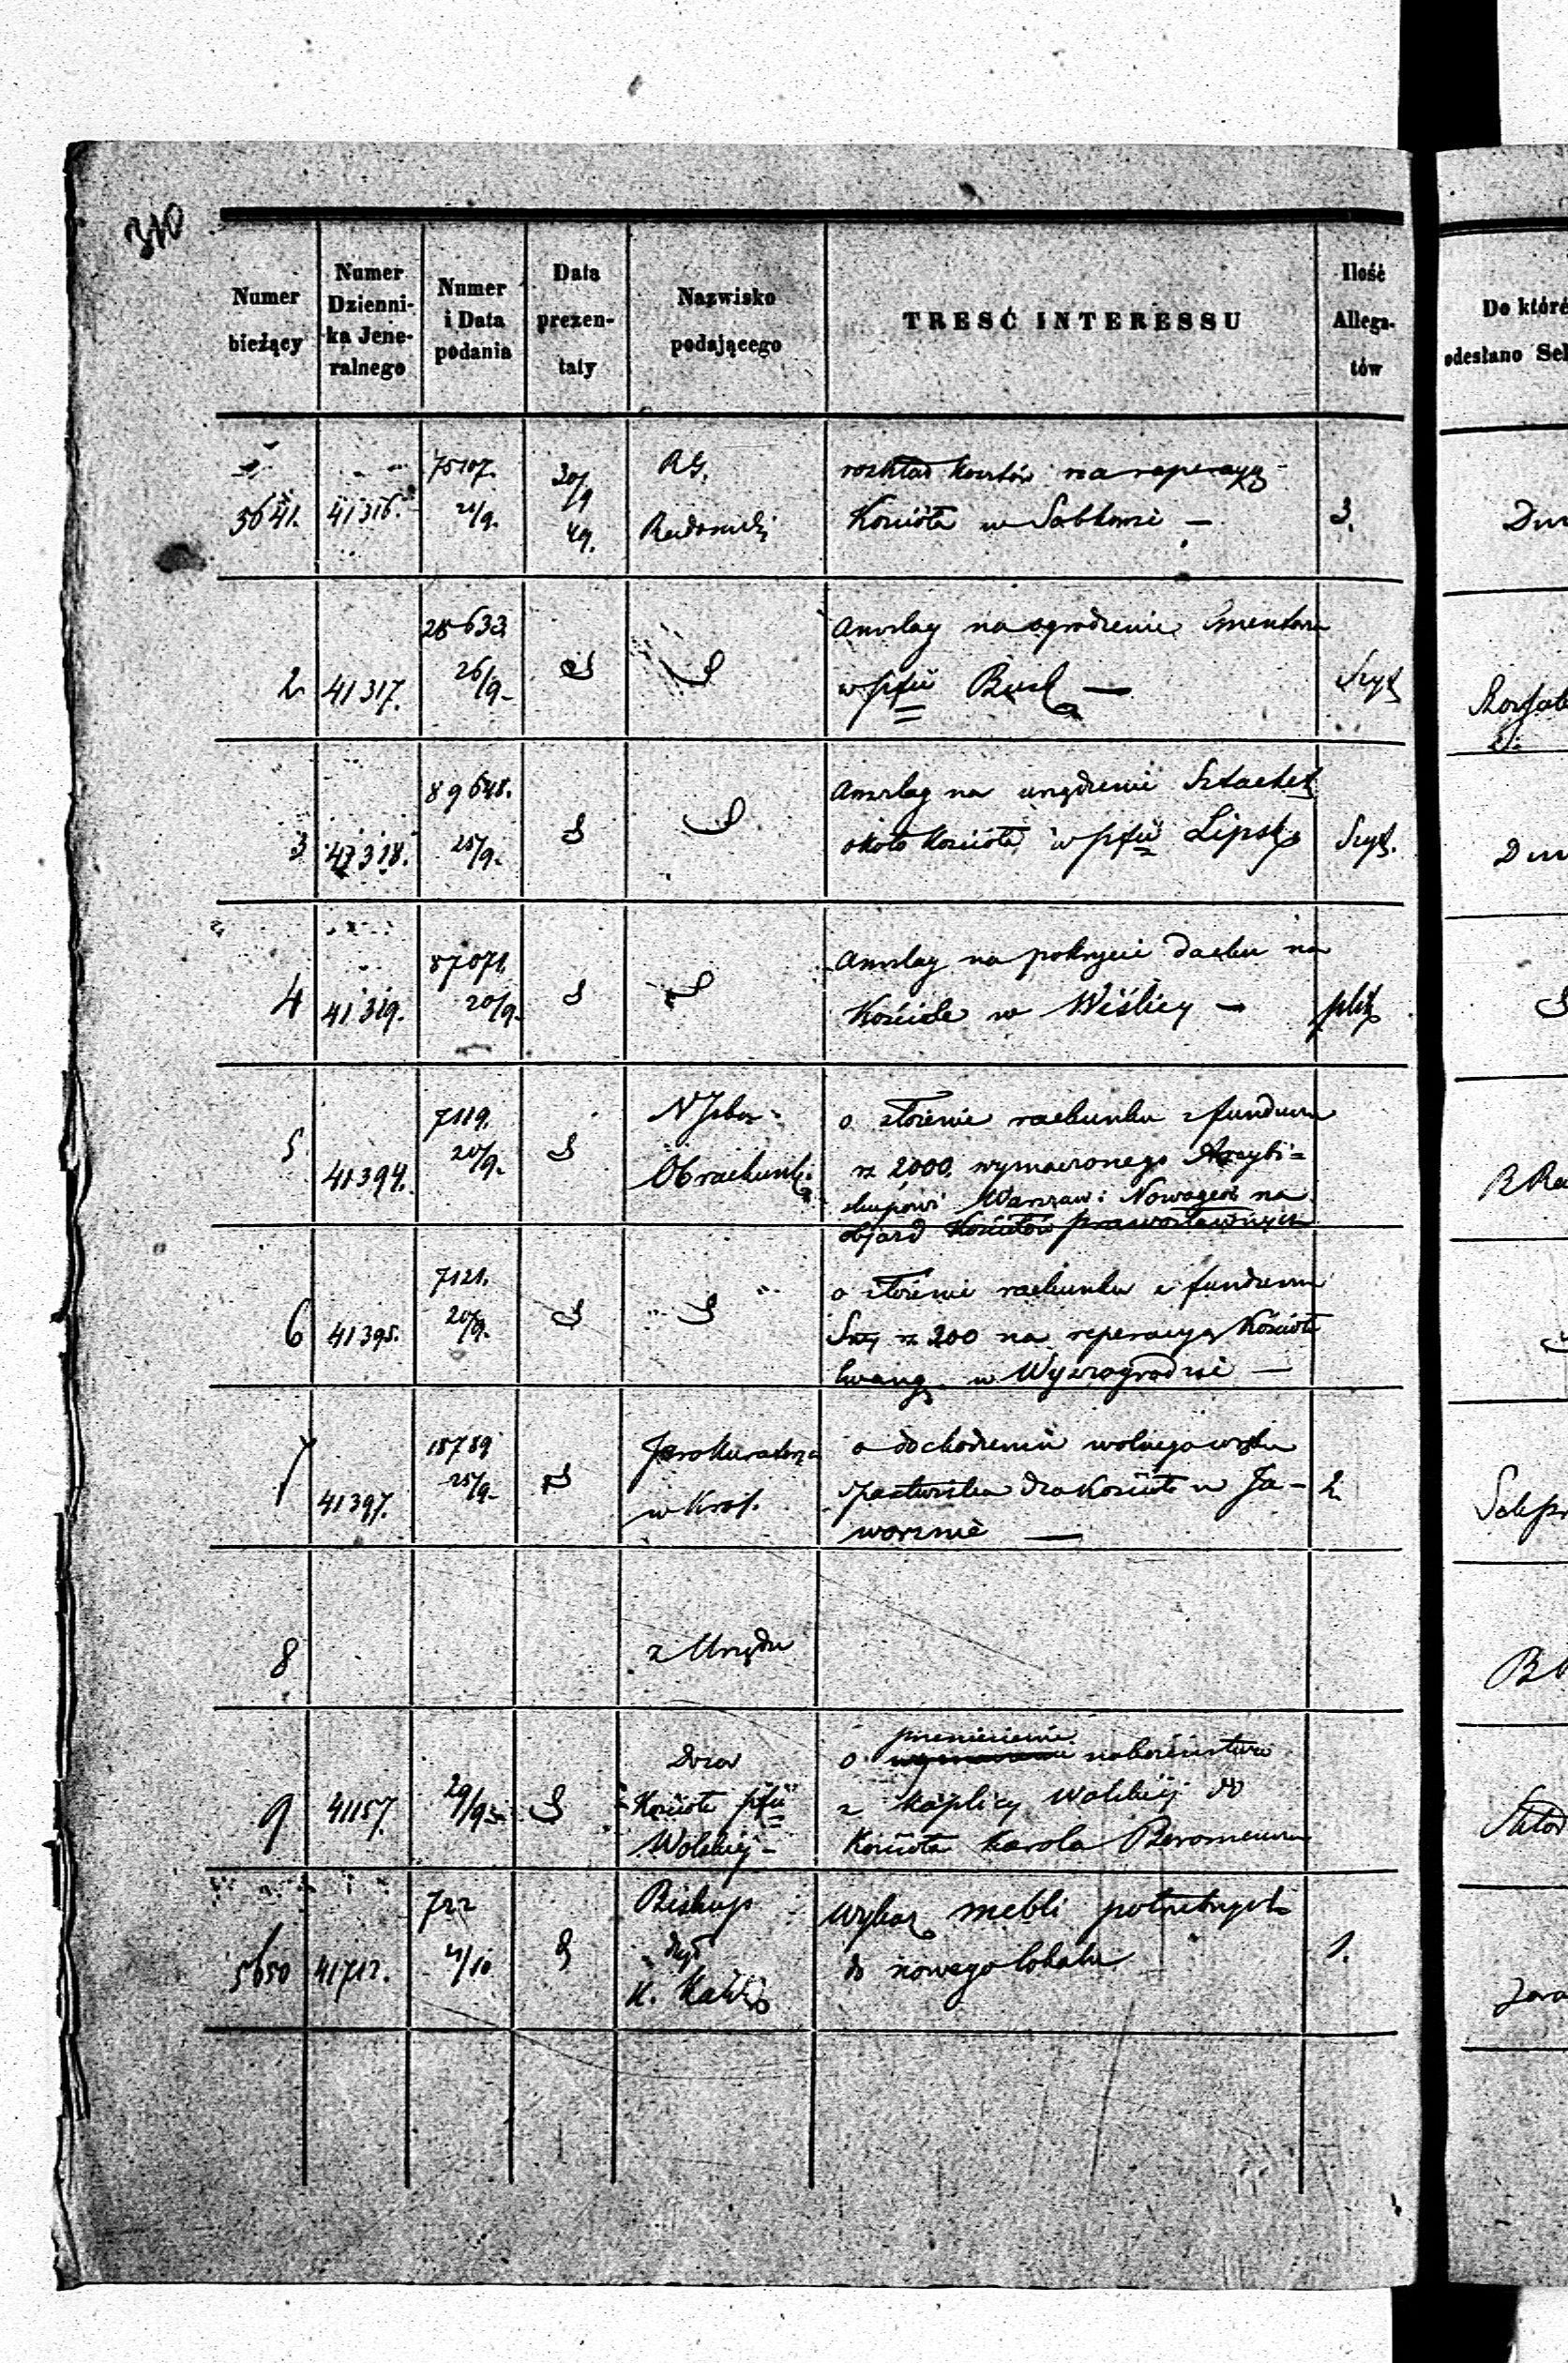 310
Numer bieżący
Numer Dziennika Jeneralnego
Numer i Data podania
Data prezentaty
Nazwisko podającego
TREŚĆ INTERESSU
Ilość Allegatów
Do któré
odesłano Sek
5641. 41316. 75107. 21/9. 30/9 49. RG. Radomski
rozkład kosztów na reperacyę
Kościoła w 3.
2 41317. 26/9
Anszlag na ogrodzenie Smentarza
w pfii Busk —
3 41318. 89648. 25/9.
Anszlag na urządzenie Sztachet
około Kościoła w pfii Lipsk
4 41319. 87071. 20/9.
Anszlag na pokrycie dachu na
Kościele w Wiślicy — plik
5 41394. 7119. 20/9. N Izba Obrachunk:
o złożenie rachunku z funduszu
rs 2000 wyznaczonego Arcybi=
skupowi Warszaw: Nowogeor: na
objazd Kościołów prawosławnych
6 41395. 7121. 20/9.
o złożenie rachunku z funduszu
rs 200 na reperacyę Kościoła
Ewang. w Wyszogrodzie —
7 41397. 15789 25/9. Prokuratorya w Król.
o dochodzeniu wolnego wrębu
pastwiska dla Kościoła w Ja-
worznie — 2.
8 z Urzędu
9 41157. 29/9 Dozor Kościoła pfii Wolskiej -
przeniesienie
o nabożeństwa
z kaplicy Wolskiej do
Kościoła Karola Boromeusza
5650 41712. 722 2/10 Biskup K. Kalis
Wykaz mebli potrzebnych
do nowego lokalu 1.